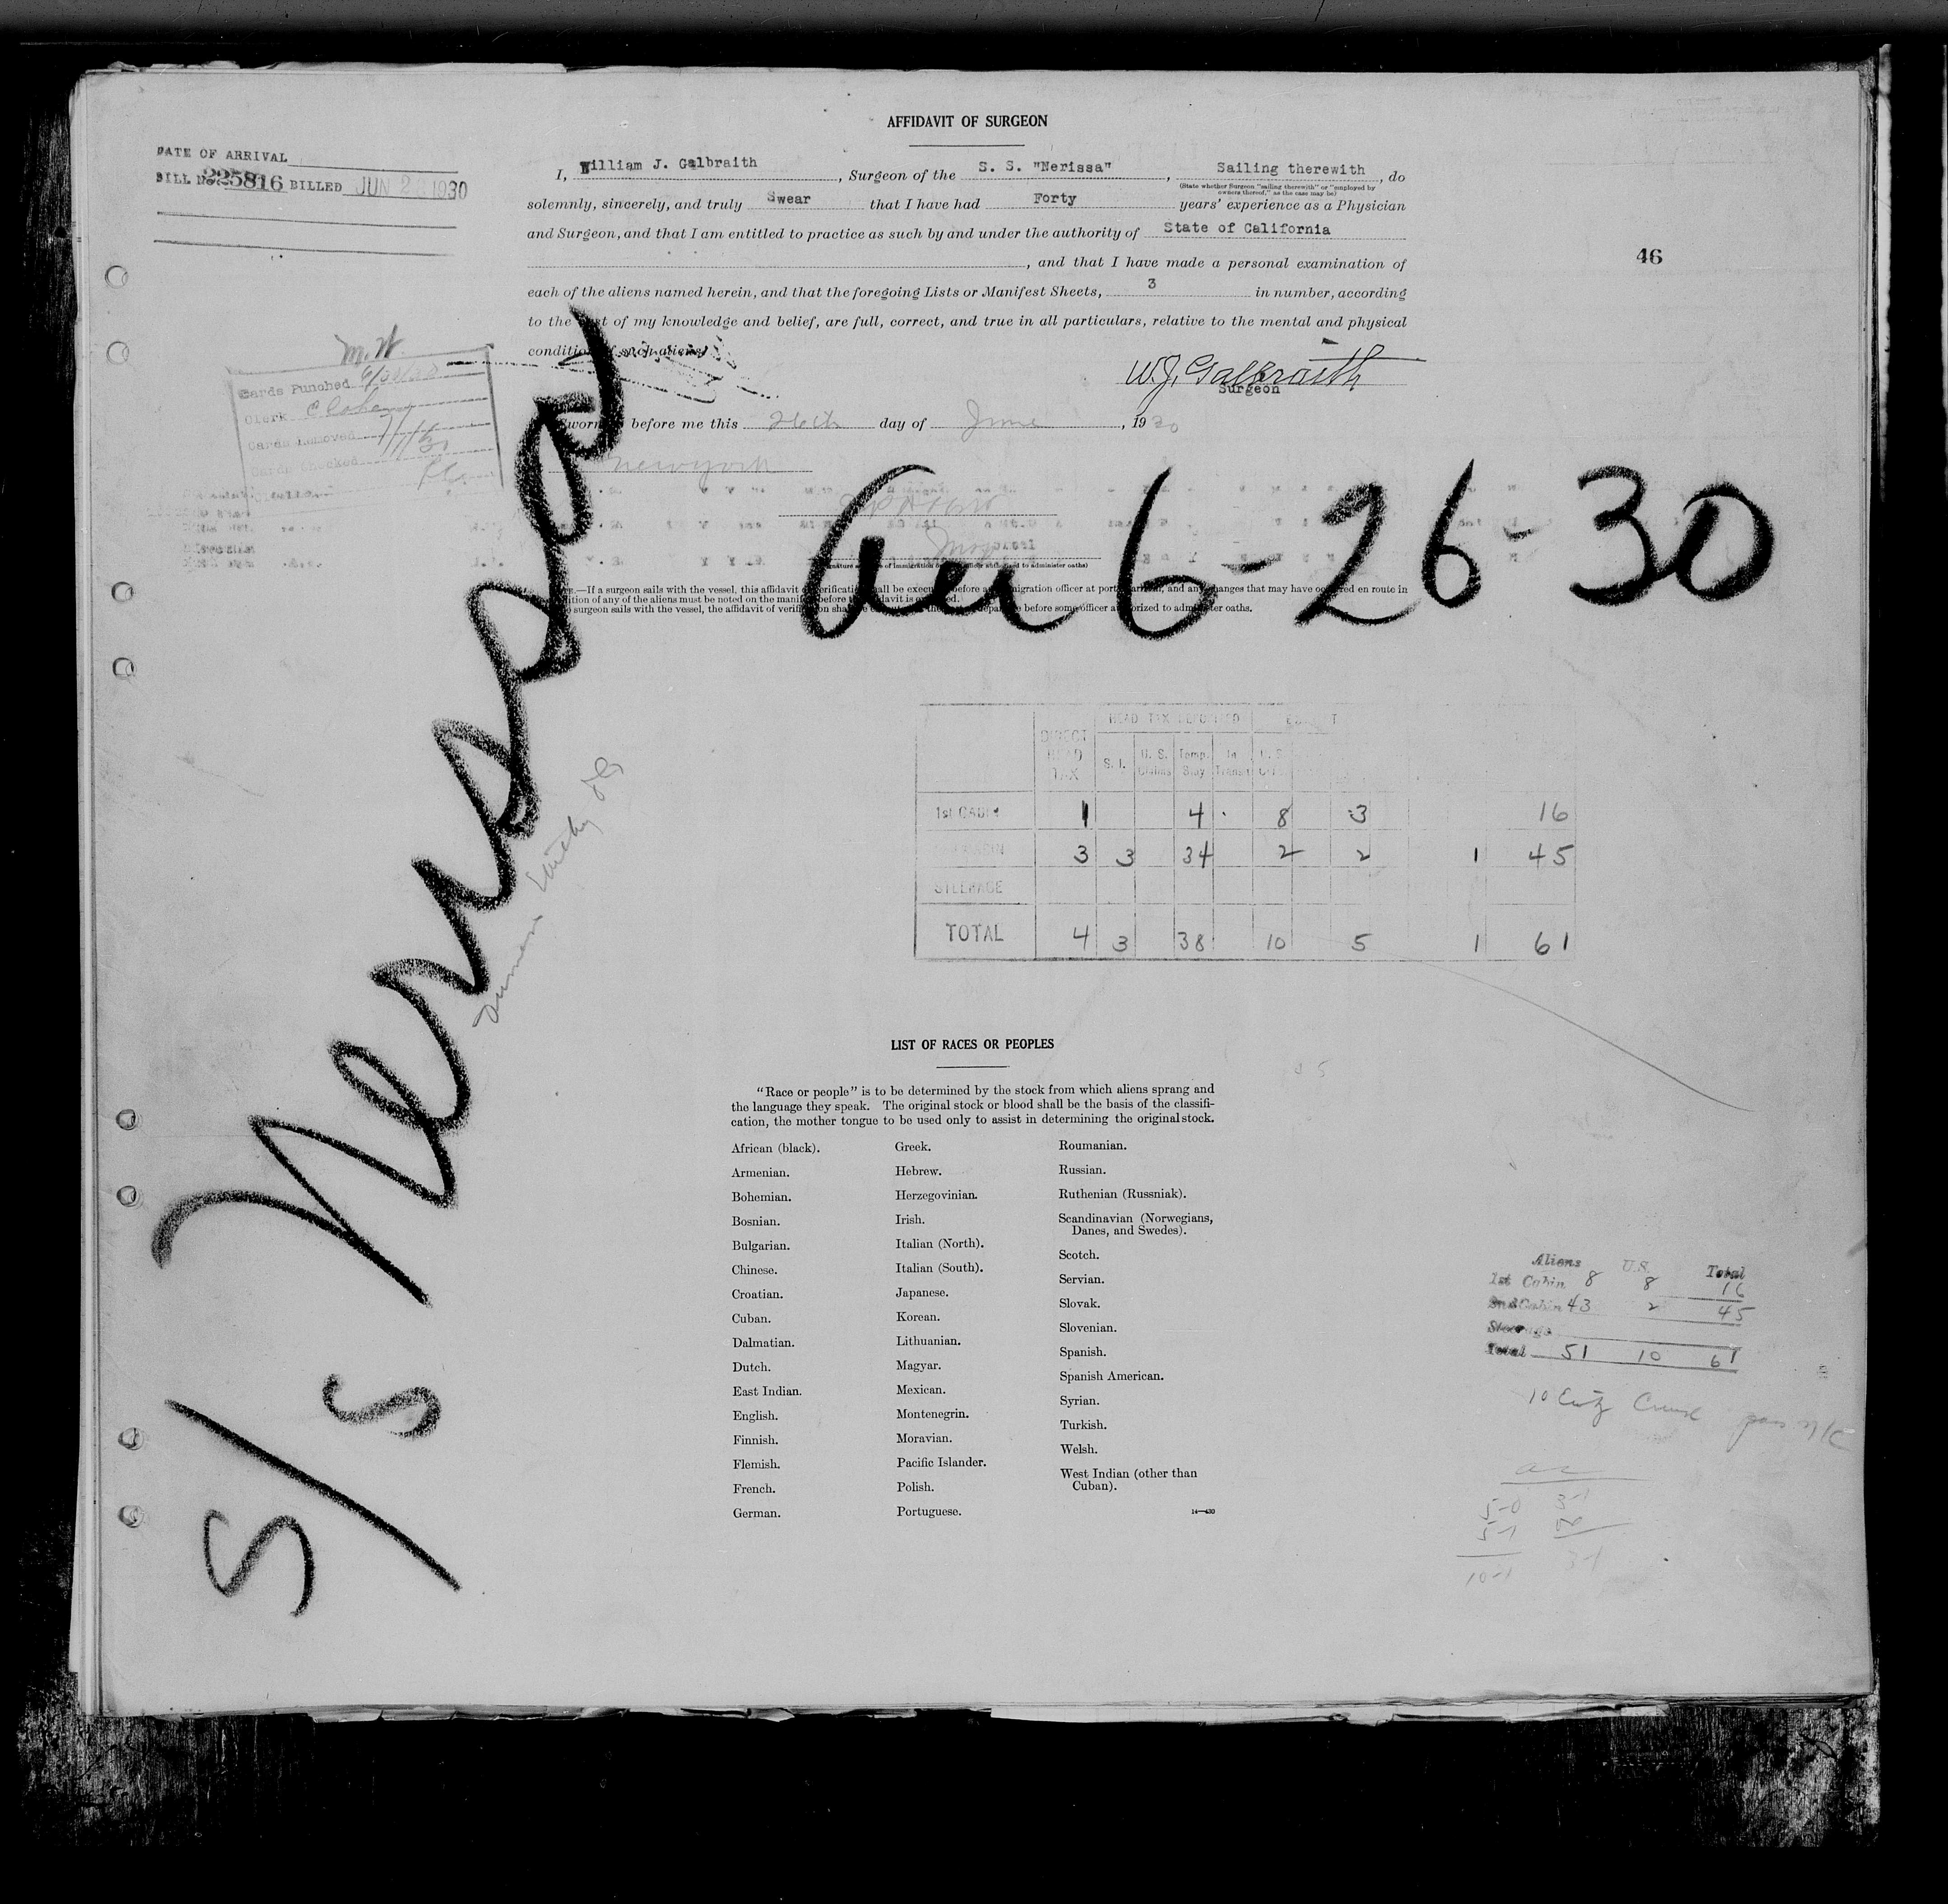 AFFIDAVIT OF SURGEON
DATE OF ARRIVAL
BILL No. 225816 BILLED JUN 2 1930
I, William J. Galbraith, Surgeon of the S. S. "Nerissa", Sailing therewith, do
(State whether Surgeon "sailing therewith" or "employed by
owners thereof," as the case may be)
solemnly, sincerely, and truly Swear that I have had Forty years' experience as a Physician
and Surgeon, and that I am entitled to practice as such by and under the authority of State of California
, and that I have made a personal examination of
46
each of the aliens named herein, and that the foregoing Lists or Manifest Sheets, 3 in number, according
to the of my knowledge and belief, are full, correct, and true in all particulars, relative to the mental and physical
condition of such aliens.
W.J. Galbraith
Surgeon
M.W.
Cards Punched
Clerk
Cards Removed
Cards Checked
Sworn before me this 26th day of June, 1930
New York
Arr 6-26-30
.—If a surgeon sails with the vessel, this affidavit verification shall be executed before an immigration officer at port arrival, and any changes that may have occurred en route in
condition of any of the aliens must be noted on the manifest before the affidavit is
surgeon sails with the vessel, the affidavit of verification shall be before some officer authorized to administer oaths.
S/S Nerissa
HEAD TAX DEPOSITED
DIRECT HEAD TAX S.I. U.S. Claims Temp. Stay In Transit
1st CABIN 1 4 8 3 16
3 3 34 2 2 1 45
STEERAGE
TOTAL 4 3 38 10 5 1 61
LIST OF RACES OR PEOPLES
"Race or people" is to be determined by the stock from which aliens sprang and
the language they speak. The original stock or blood shall be the basis of the classifi-
cation, the mother tongue to be used only to assist in determining the original stock.
African (black).
Armenian.
Bohemian.
Bosnian.
Bulgarian.
Chinese.
Croatian.
Cuban.
Dalmatian.
Dutch.
East Indian.
English.
Finnish.
Flemish.
French.
German.
Greek.
Hebrew.
Herzegovinian.
Irish.
Italian (North).
Italian (South).
Japanese.
Korean.
Lithuanian.
Magyar.
Mexican.
Montenegrin.
Moravian.
Pacific Islander.
Polish.
Portuguese.
Roumanian.
Russian.
Ruthenian (Russniak).
Scandinavian (Norwegians,
Danes, and Swedes).
Scotch.
Servian.
Slovak.
Slovenian.
Spanish.
Spanish American.
Syrian.
Turkish.
Welsh.
West Indian (other than
Cuban).
14—430
Aliens U.S. Total
1st Cabin 8 8 16
2nd Cabin 43 2 45
Steerage
Total 51 10 61